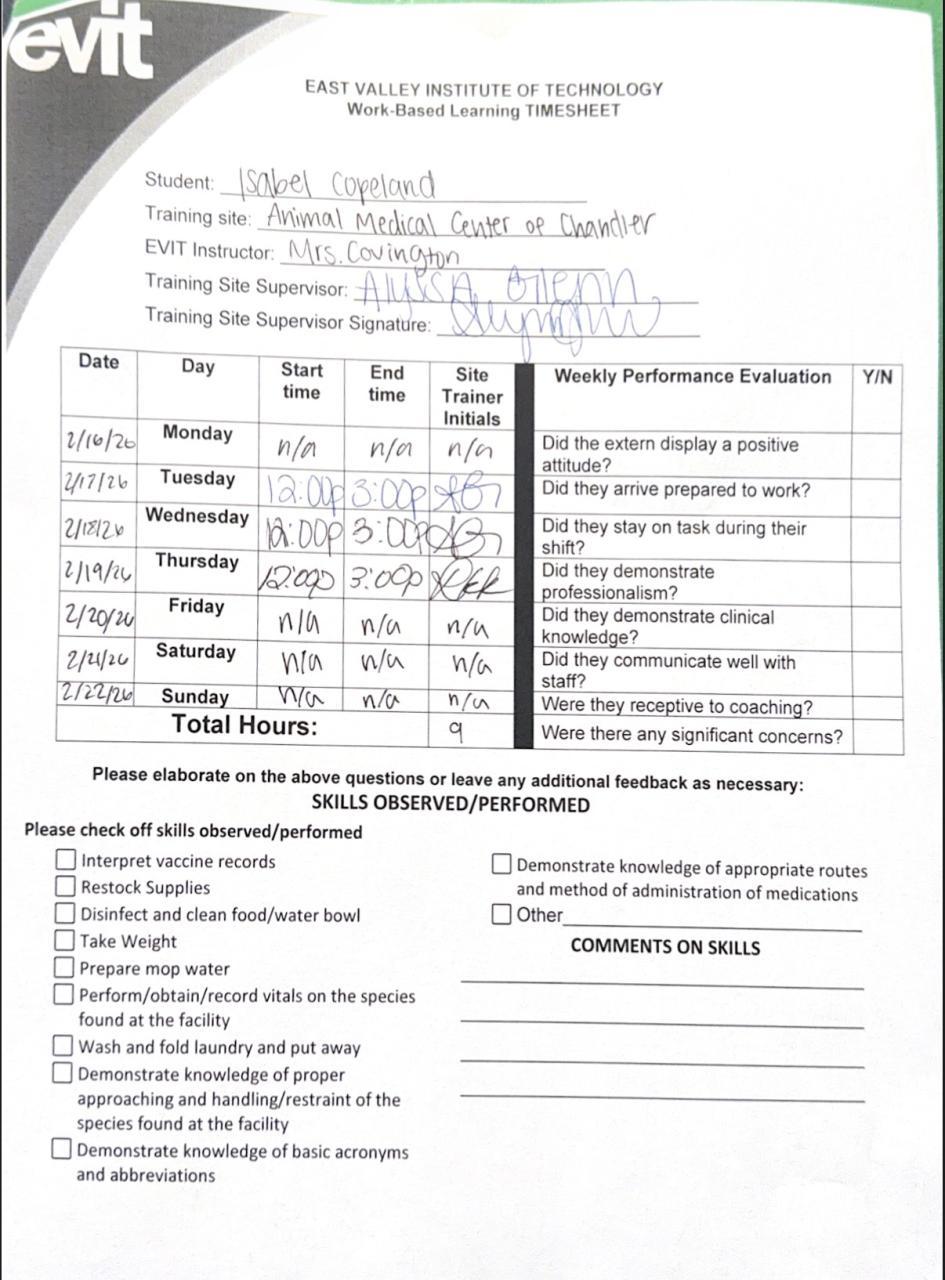 evit
EAST VALLEY INSTITUTE OF TECHNOLOGY
Work-Based Learning TIMESHEET
Student: Isabel Copeland
Training site: Animal Medical Center of Chandler
EVIT Instructor: Mrs. Covington
Training Site Supervisor: Alyssa
Training Site Supervisor Signature:
Date Day Start time End time Site Trainer Initials Weekly Performance Evaluation Y/N
2/16/26 Monday n/a n/a n/a Did the extern display a positive attitude?
2/17/26 Tuesday 12:00p 3:00p Did they arrive prepared to work?
2/18/26 Wednesday 12:00p 3:00p Did they stay on task during their shift?
2/19/26 Thursday 12:00p 3:00p Did they demonstrate professionalism?
2/20/26 Friday n/a n/a n/a Did they demonstrate clinical knowledge?
2/21/26 Saturday n/a n/a n/a Did they communicate well with staff?
2/22/26 Sunday n/a n/a n/a Were they receptive to coaching?
Total Hours: 9 Were there any significant concerns?
Please elaborate on the above questions or leave any additional feedback as necessary:
SKILLS OBSERVED/PERFORMED
Please check off skills observed/performed
Interpret vaccine records
Restock Supplies
Disinfect and clean food/water bowl
Take Weight
Prepare mop water
Perform/obtain/record vitals on the species
found at the facility
Wash and fold laundry and put away
Demonstrate knowledge of proper
approaching and handling/restraint of the
species found at the facility
Demonstrate knowledge of basic acronyms
and abbreviations
Demonstrate knowledge of appropriate routes
and method of administration of medications
Other
COMMENTS ON SKILLS